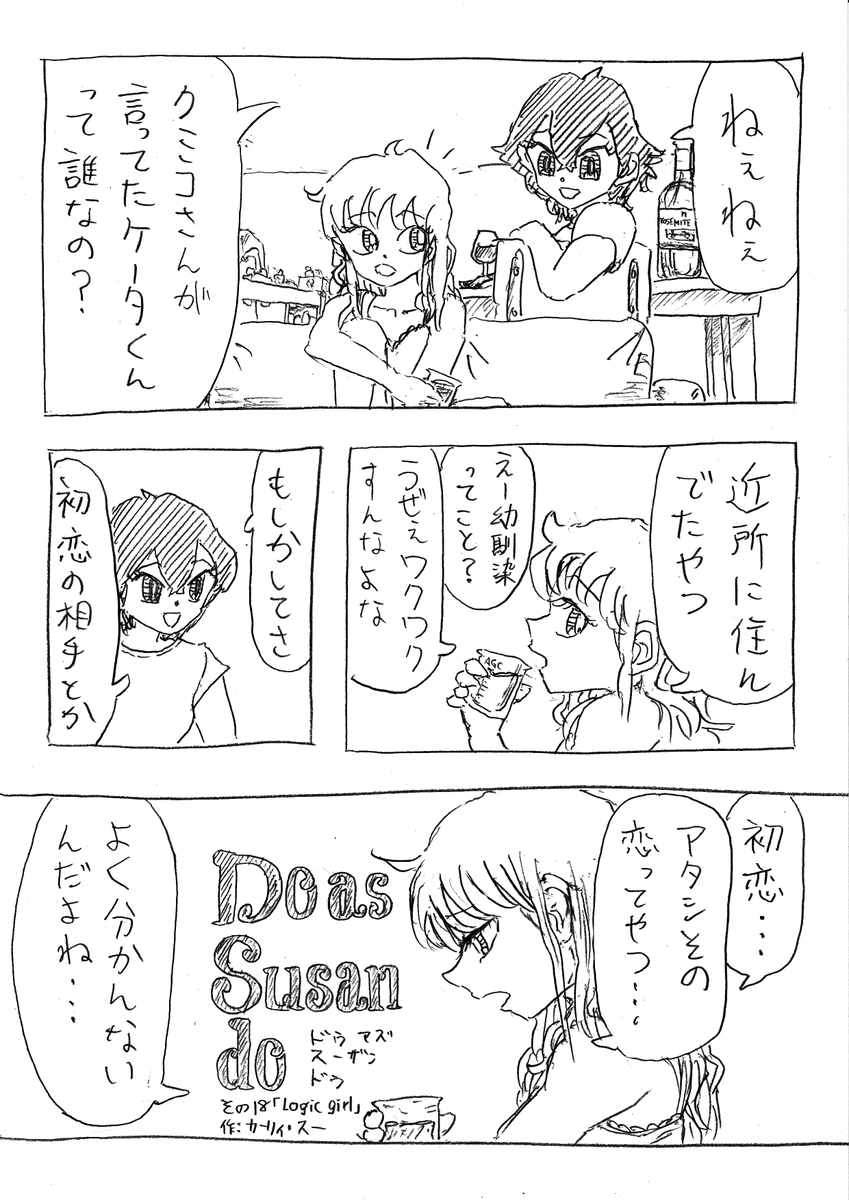 ねぇねぇ
クミコさんが
言ってたケータくん
って誰なの？
YOSEMITE
近所に住ん
でたやつ
えー幼馴染
ってこと？
うぜぇワクワク
すんなよな
AGC
もしかしてさ
初恋の相手とか
初恋…
アタシその
恋ってやつ…
よく分かんない
んだよね…
Do as
Susan
do
ドゥ アズ
スーザン
ドゥ
その18「Logic girl」
作：カーリィ・スー